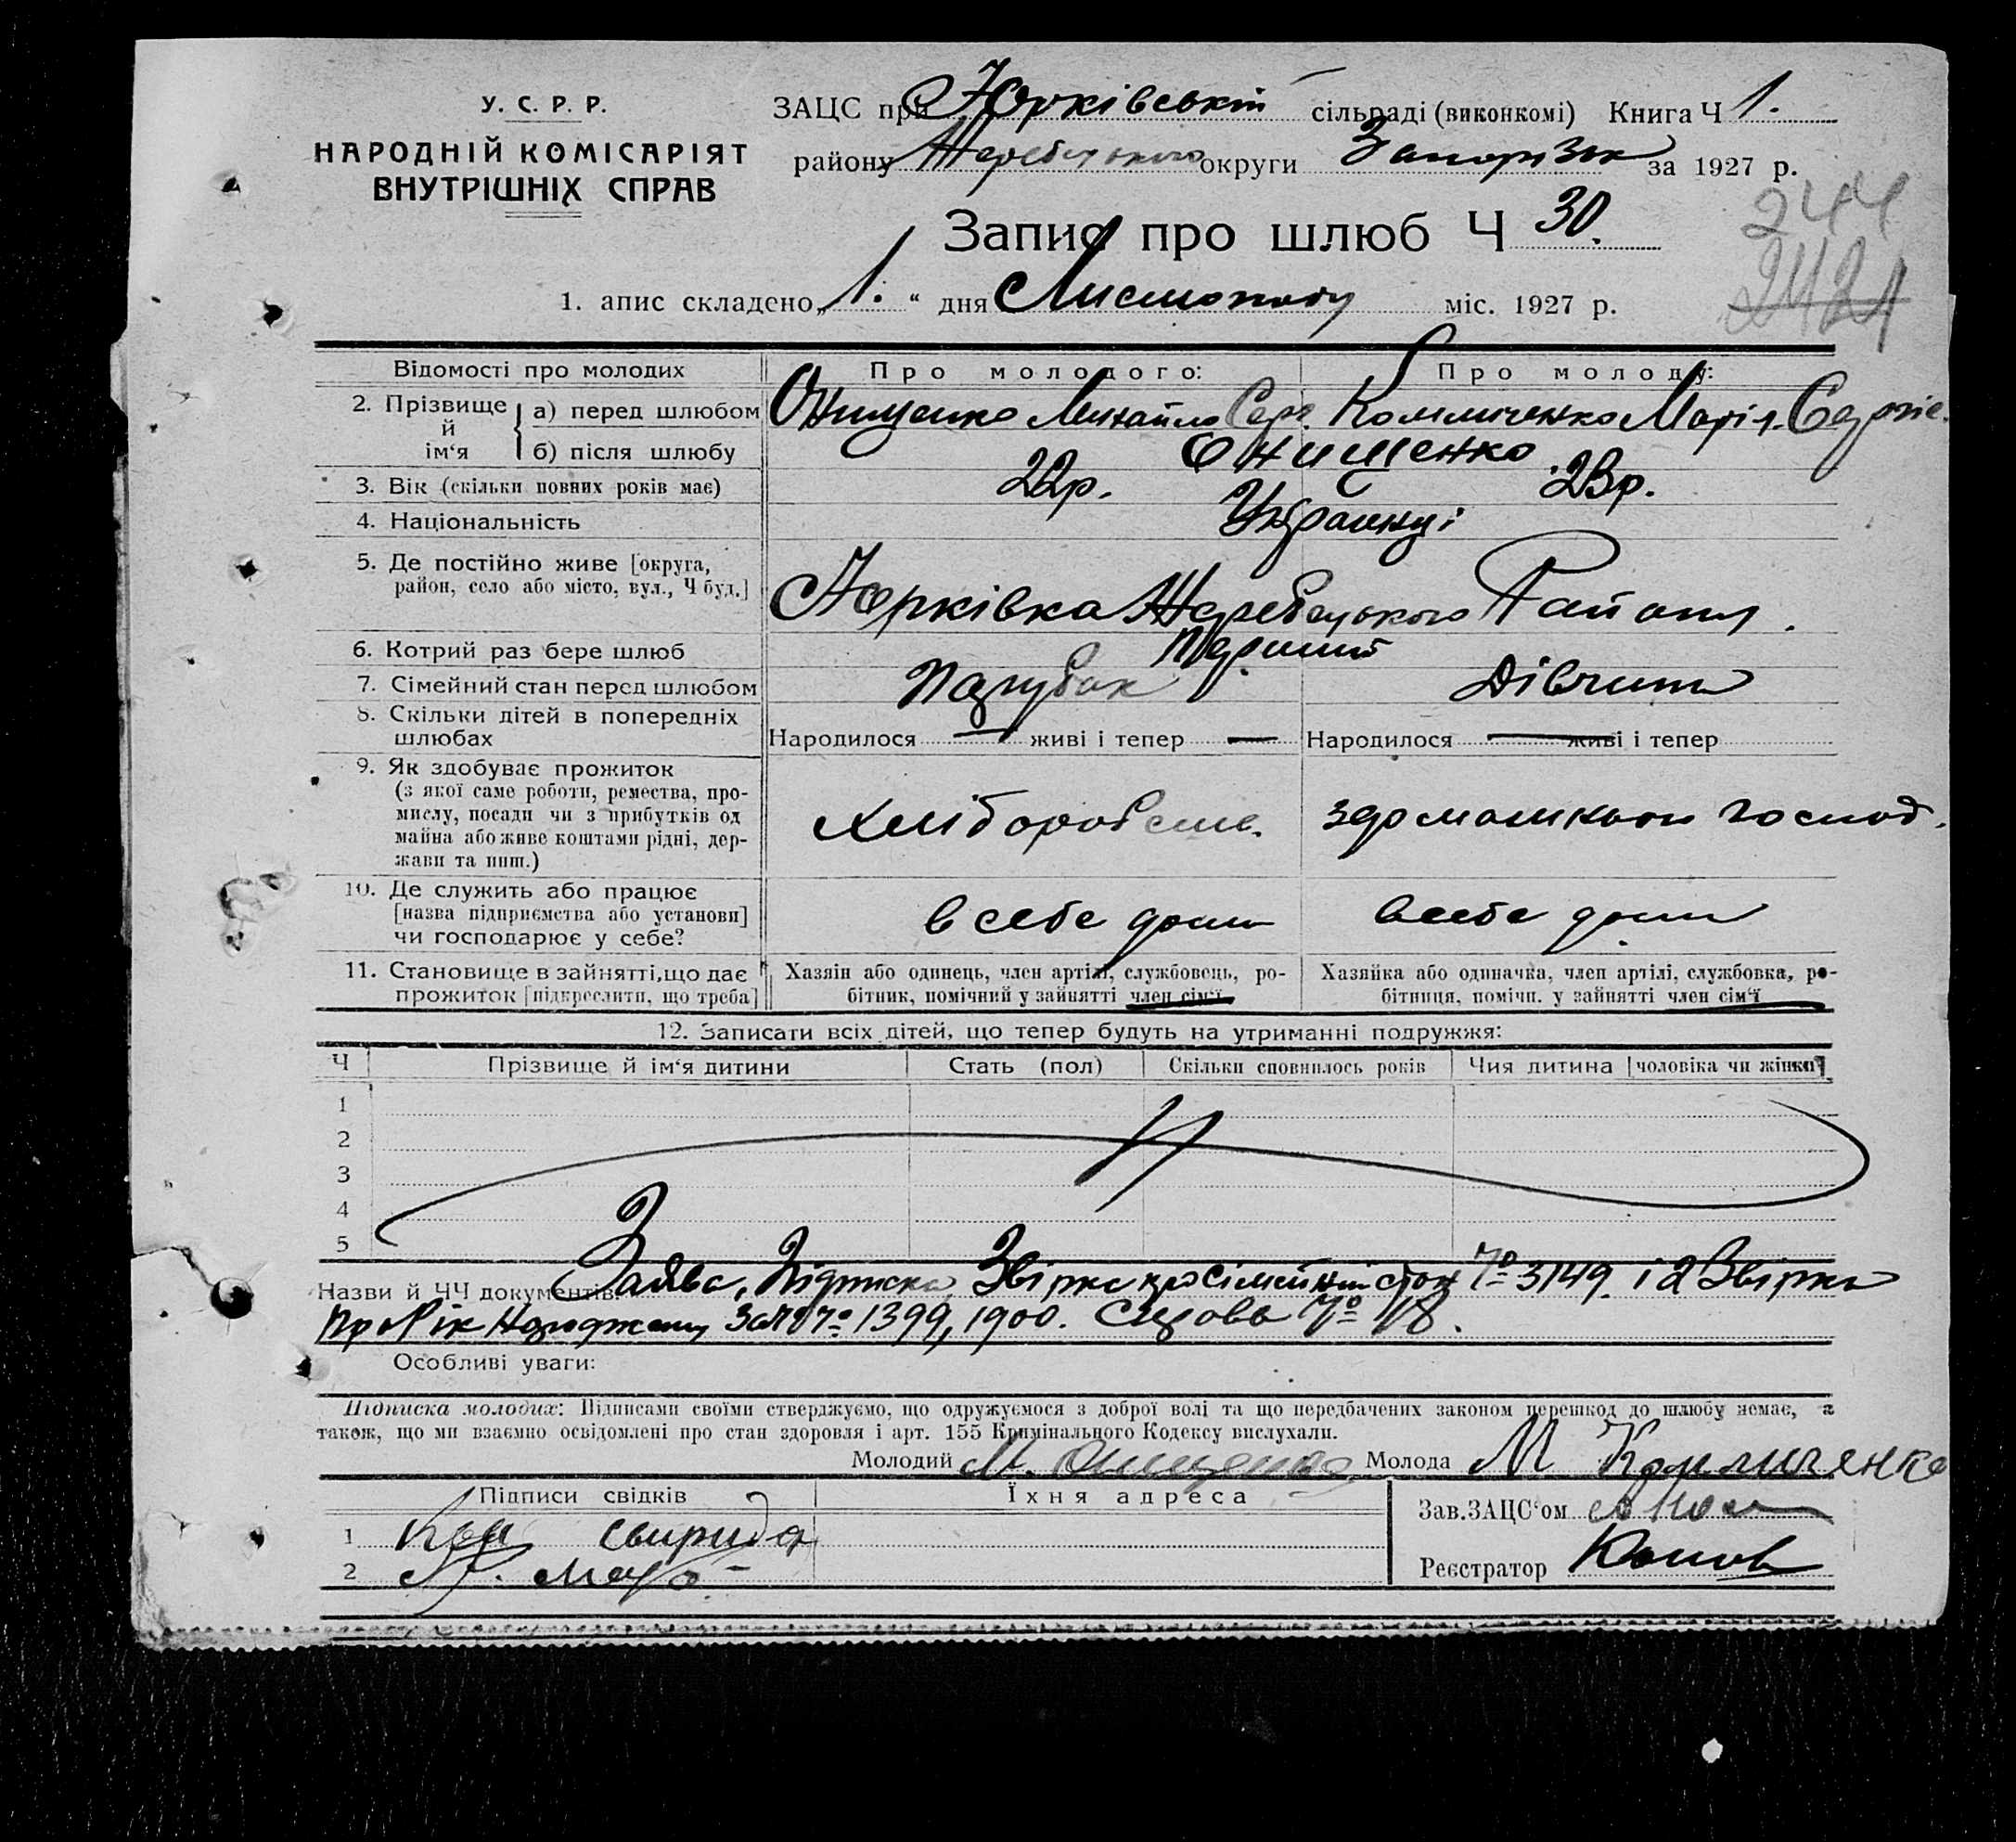 У. С. Р. Р.
НАРОДНІЙ КОМІСАРІЯТ
ВНУТРІШНІХ СПРАВ
ЗАЦС при Юрківській сільраді (виконкомі) Книга Ч 1.
району Жеребецького округи Запорізьк за 1927 р.
Запис про шлюб Ч 30.
244
1. апис складено „1.“ дня Листопаду міс. 1927 р.
Відомості про молодих Про молодого: Про молоду:
2. Прізвище й ім‘я а) перед шлюбом Онищенко Михайло Серг. Марія Сергіе.
б) після шлюбу Онищенко
3. Вік (скільки повних років має) 22р. 23р.
4. Національність Українці
5. Де постійно живе [округа,
район, село або місто, вул., Ч буд.] Юрківка Жеребецького Району.
6. Котрий раз бере шлюб Перший
7. Сімейний стан перед шлюбом Парубок Дівчина
8. Скільки дітей в попередніх
шлюбах Народилося — живі і тепер — Народилося — живі і тепер
9. Як здобуває прожиток
(з якої саме роботи, ремества, про-
мислу, посади чи з прибутків од
майна або живе коштами рідні, дер-
жави та инш.) Хліборобств. господ.
10. Де служить або працює
[назва підприємства або установи]
чи господарює у себе? в себе дома в себе дома
11. Становище в зайнятті, що дає
прожиток [підкреслити, що треба]
Хазяін або одинець, член артілі, службовець, ро-
бітник, помічний у зайнятті член сім‘ї
Хазяйка або одиначка, член артілі, службовка, ро-
бітниця, помічн. у зайнятті член сім‘ї
12. Записати всіх дітей, що тепер будуть на утриманні подружжя:
Ч Прізвище й ім‘я дитини Стать (пол) Скільки сповнилось років Чия дитина [чоловіка чи жінки]
1
2
3
4
5
Назви й ЧЧ документів: Заява, Підписка, Звірка про сімейний стан № 3149. і 2 Звірки
про Рік Народження за № 1399, 1900. № 18.
Особливі уваги:
Підписка молодих: Підписами своїми стверджуємо, що одружуємося з доброї волі та що передбачених законом перешкод до шлюбу немає, а
також, що ми взаємно освідомлені про стан здоровля і арт. 155 Кримінального Кодексу вислухали.
Молодий М. Онищенко Молода М
Підписи свідків Їхня адреса
Зав.ЗАЦС‘ом
1
2
Реєстратор